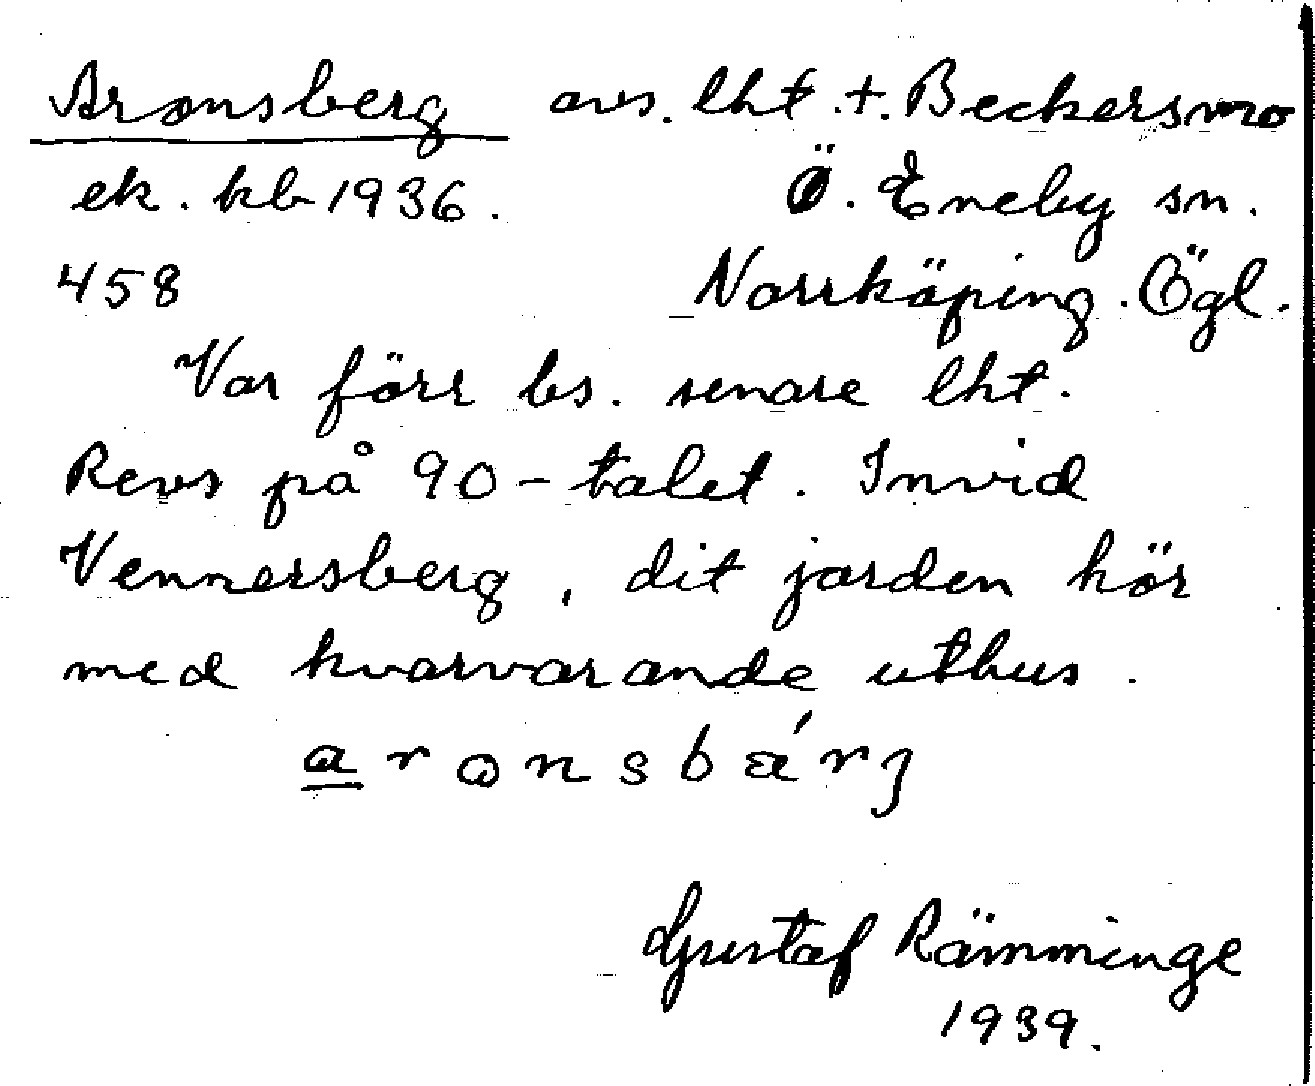 Aronsberg avs. lht. +. Beckersmo
ek. kb 1936. Ö. Eneby sn.
458 Norrköping. Ögl.
Var förr bs. senare lht.
Revs på 90-talet. Invid
Vennersberg, dit jorden hör
med kvarvarande uthus.
a r o n s b ǽ r j
Gustaf Rämminge
1939.